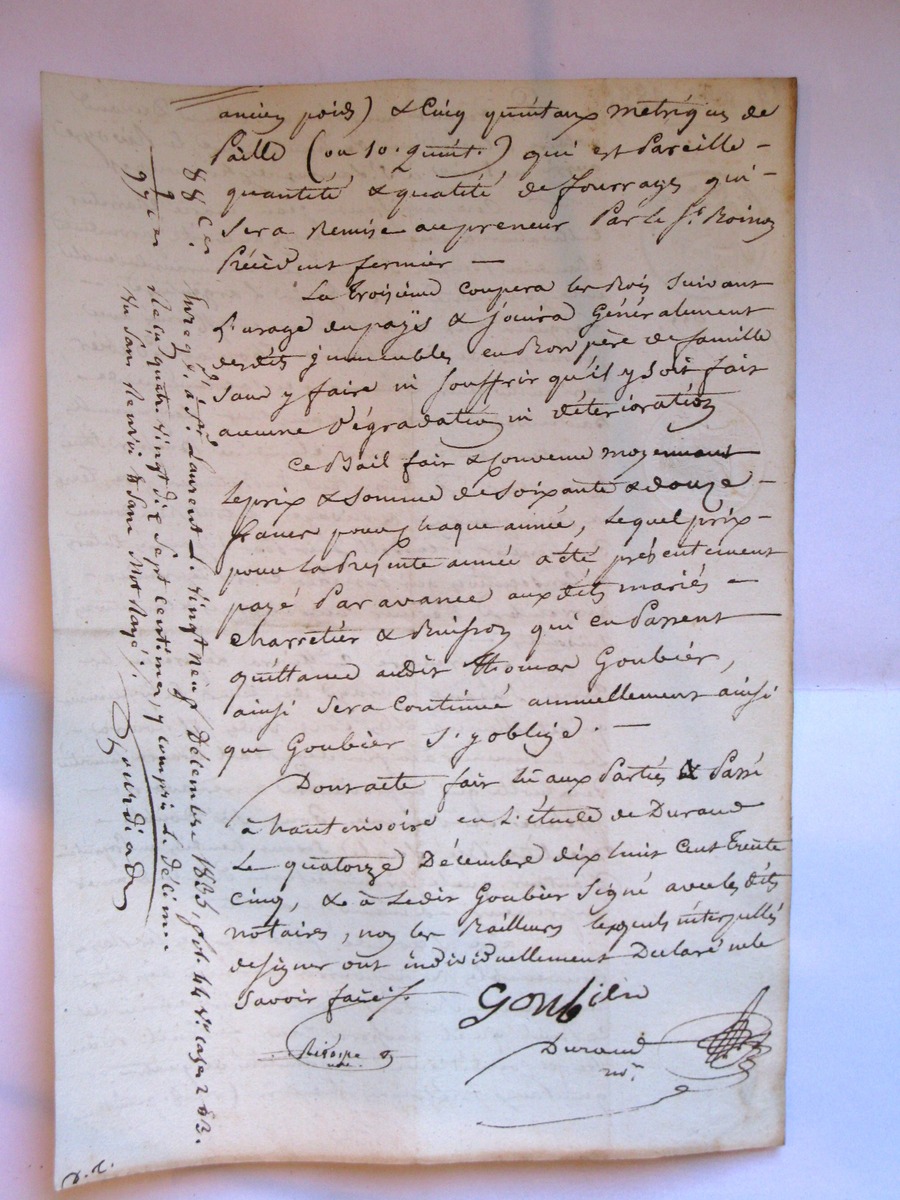 ancien poids) & Cinq quintaux métriques de
Paille (ou 10. quint.) qui est Pareille -
quantité & qualité de fourrages qui -
sera Remise au preneur Par le Sr. Roinon
Précédent fermier —
La troisième coupera les Bois suivant
L'usage du pays & jouira Généralement
desdits jmmeubles en Bon père de famille
sans y faire ni souffrir qu'il y soit fait
aucune Dégradation ni Détérioration
Ce Bail fait & Convenu moyennant
le prix & somme de soixante & douze -
francs pour chaque année, lequel prix -
pour La Présente année a été présentement
payé Par avance auxdits mariés -
Charretier & Buisson qui en Passent
quittance audit Thomas Goubier,
ainsi sera Continué annuellement ainsi
que Goubier s'y oblige. —
Dont acte fait lu aux Parties & Passé
à hauterivoire en L'étude de Durand
Le quatorze Décembre dix huit Cent Trente
Cinq, & à Ledit Goubier signé avec lesdits
notaires, non les Bailleurs lesquels interpellés
de signer ont individuellement Déclaré ne le
savoir faire.
Goubier
Durand
nore.
88 Ces
9
97 ces
Enregé. à St. Laurent L. vingt neuf Décembre 1835, fol. 44 Vo. cases 2 & 3.
Reçu quatre vingt dix Sept Centimes, y compris le décime
un sans Renvoi & sans Mot Rayé.